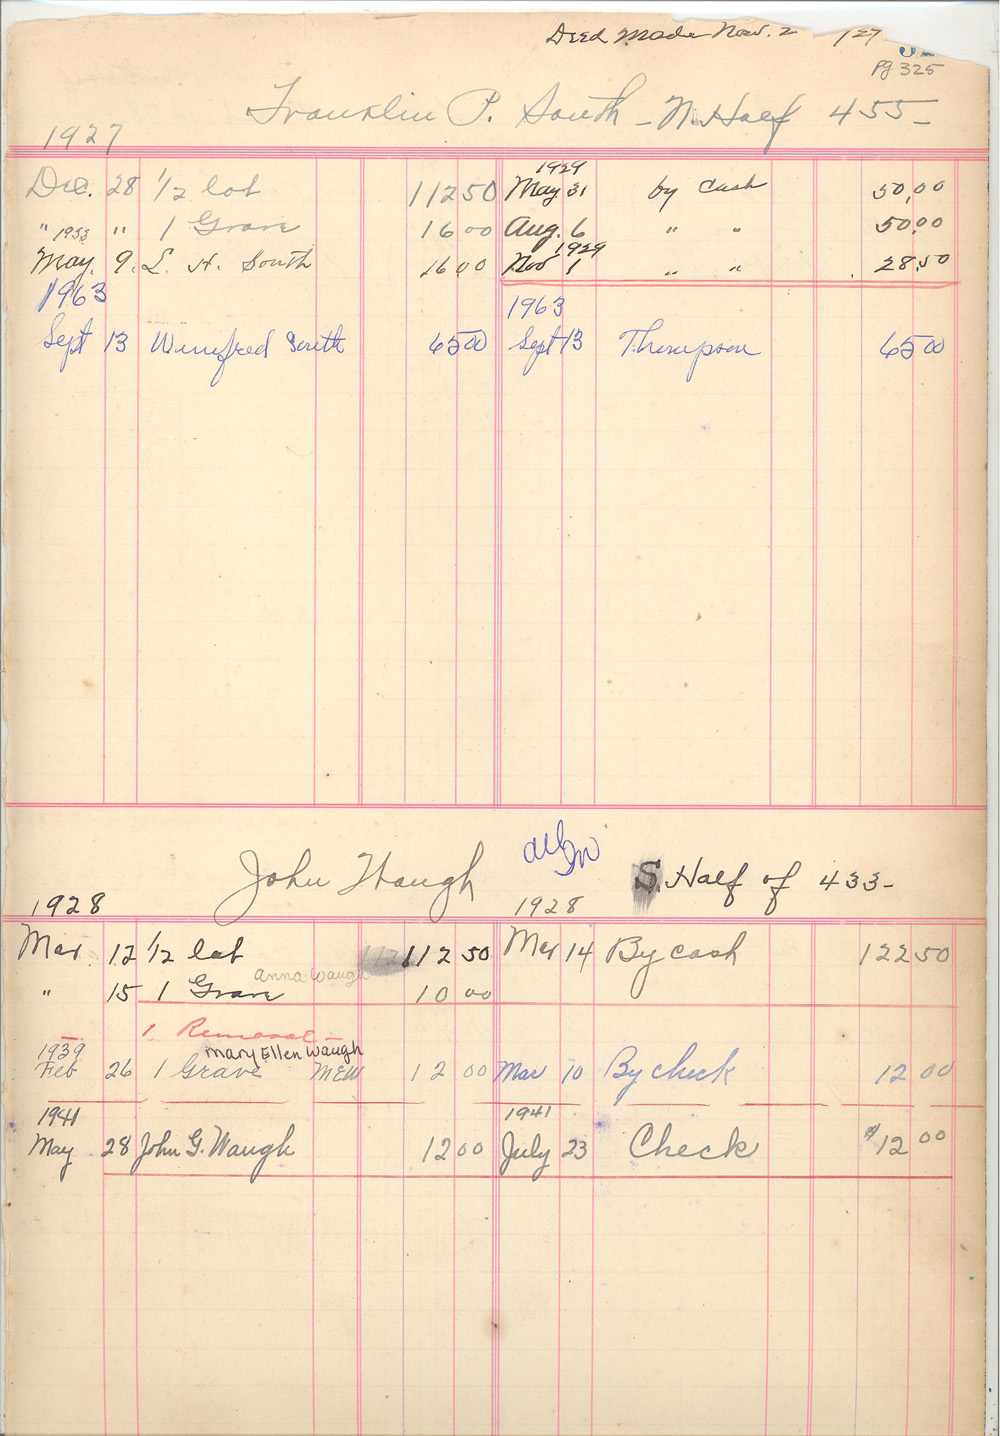 Deed Made Nov. 2 127
pg 325
Franklin P. South - N. Half 455-
1927
1929
Dec. 28 1/2 lot 112 50 May 31 by Cash 50.00
" " 1 Grave 16 00 Aug. 6 " " 50.00
1953 1929
May. 9. L. H. South 16 00 Nov 1 " " 28.50
1963 1963
Sept 13 Winifred South 65 00 Sept 13 Thompson 65 00
John Waugh S. Half of 433-
1928 1928
Mar. 12 1/2 lot 112 50 Mar 14 By cash 122 50
Anna Waugh
" 15 1 Grave 10 00
1 Removal
1939 Mary Ellen Waugh
Feb 26 1 Grave MEW 12 00 Mar 10 By check 12 00
1941 1941
May 28 John G. Waugh 12 00 July 23 Check $12 00